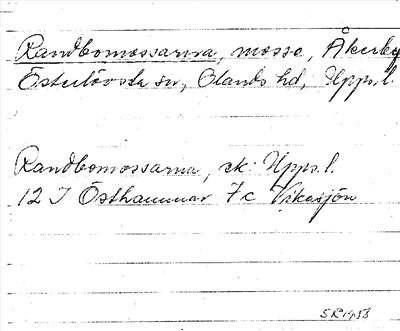 Randbomossarna, mosse, Åkerby
Österlövsta sn, Olands hd, Upps. l.
Randbomossarna, ek. Upps. l.
12 I Östhammar 7c Vikasjön
SR 1958